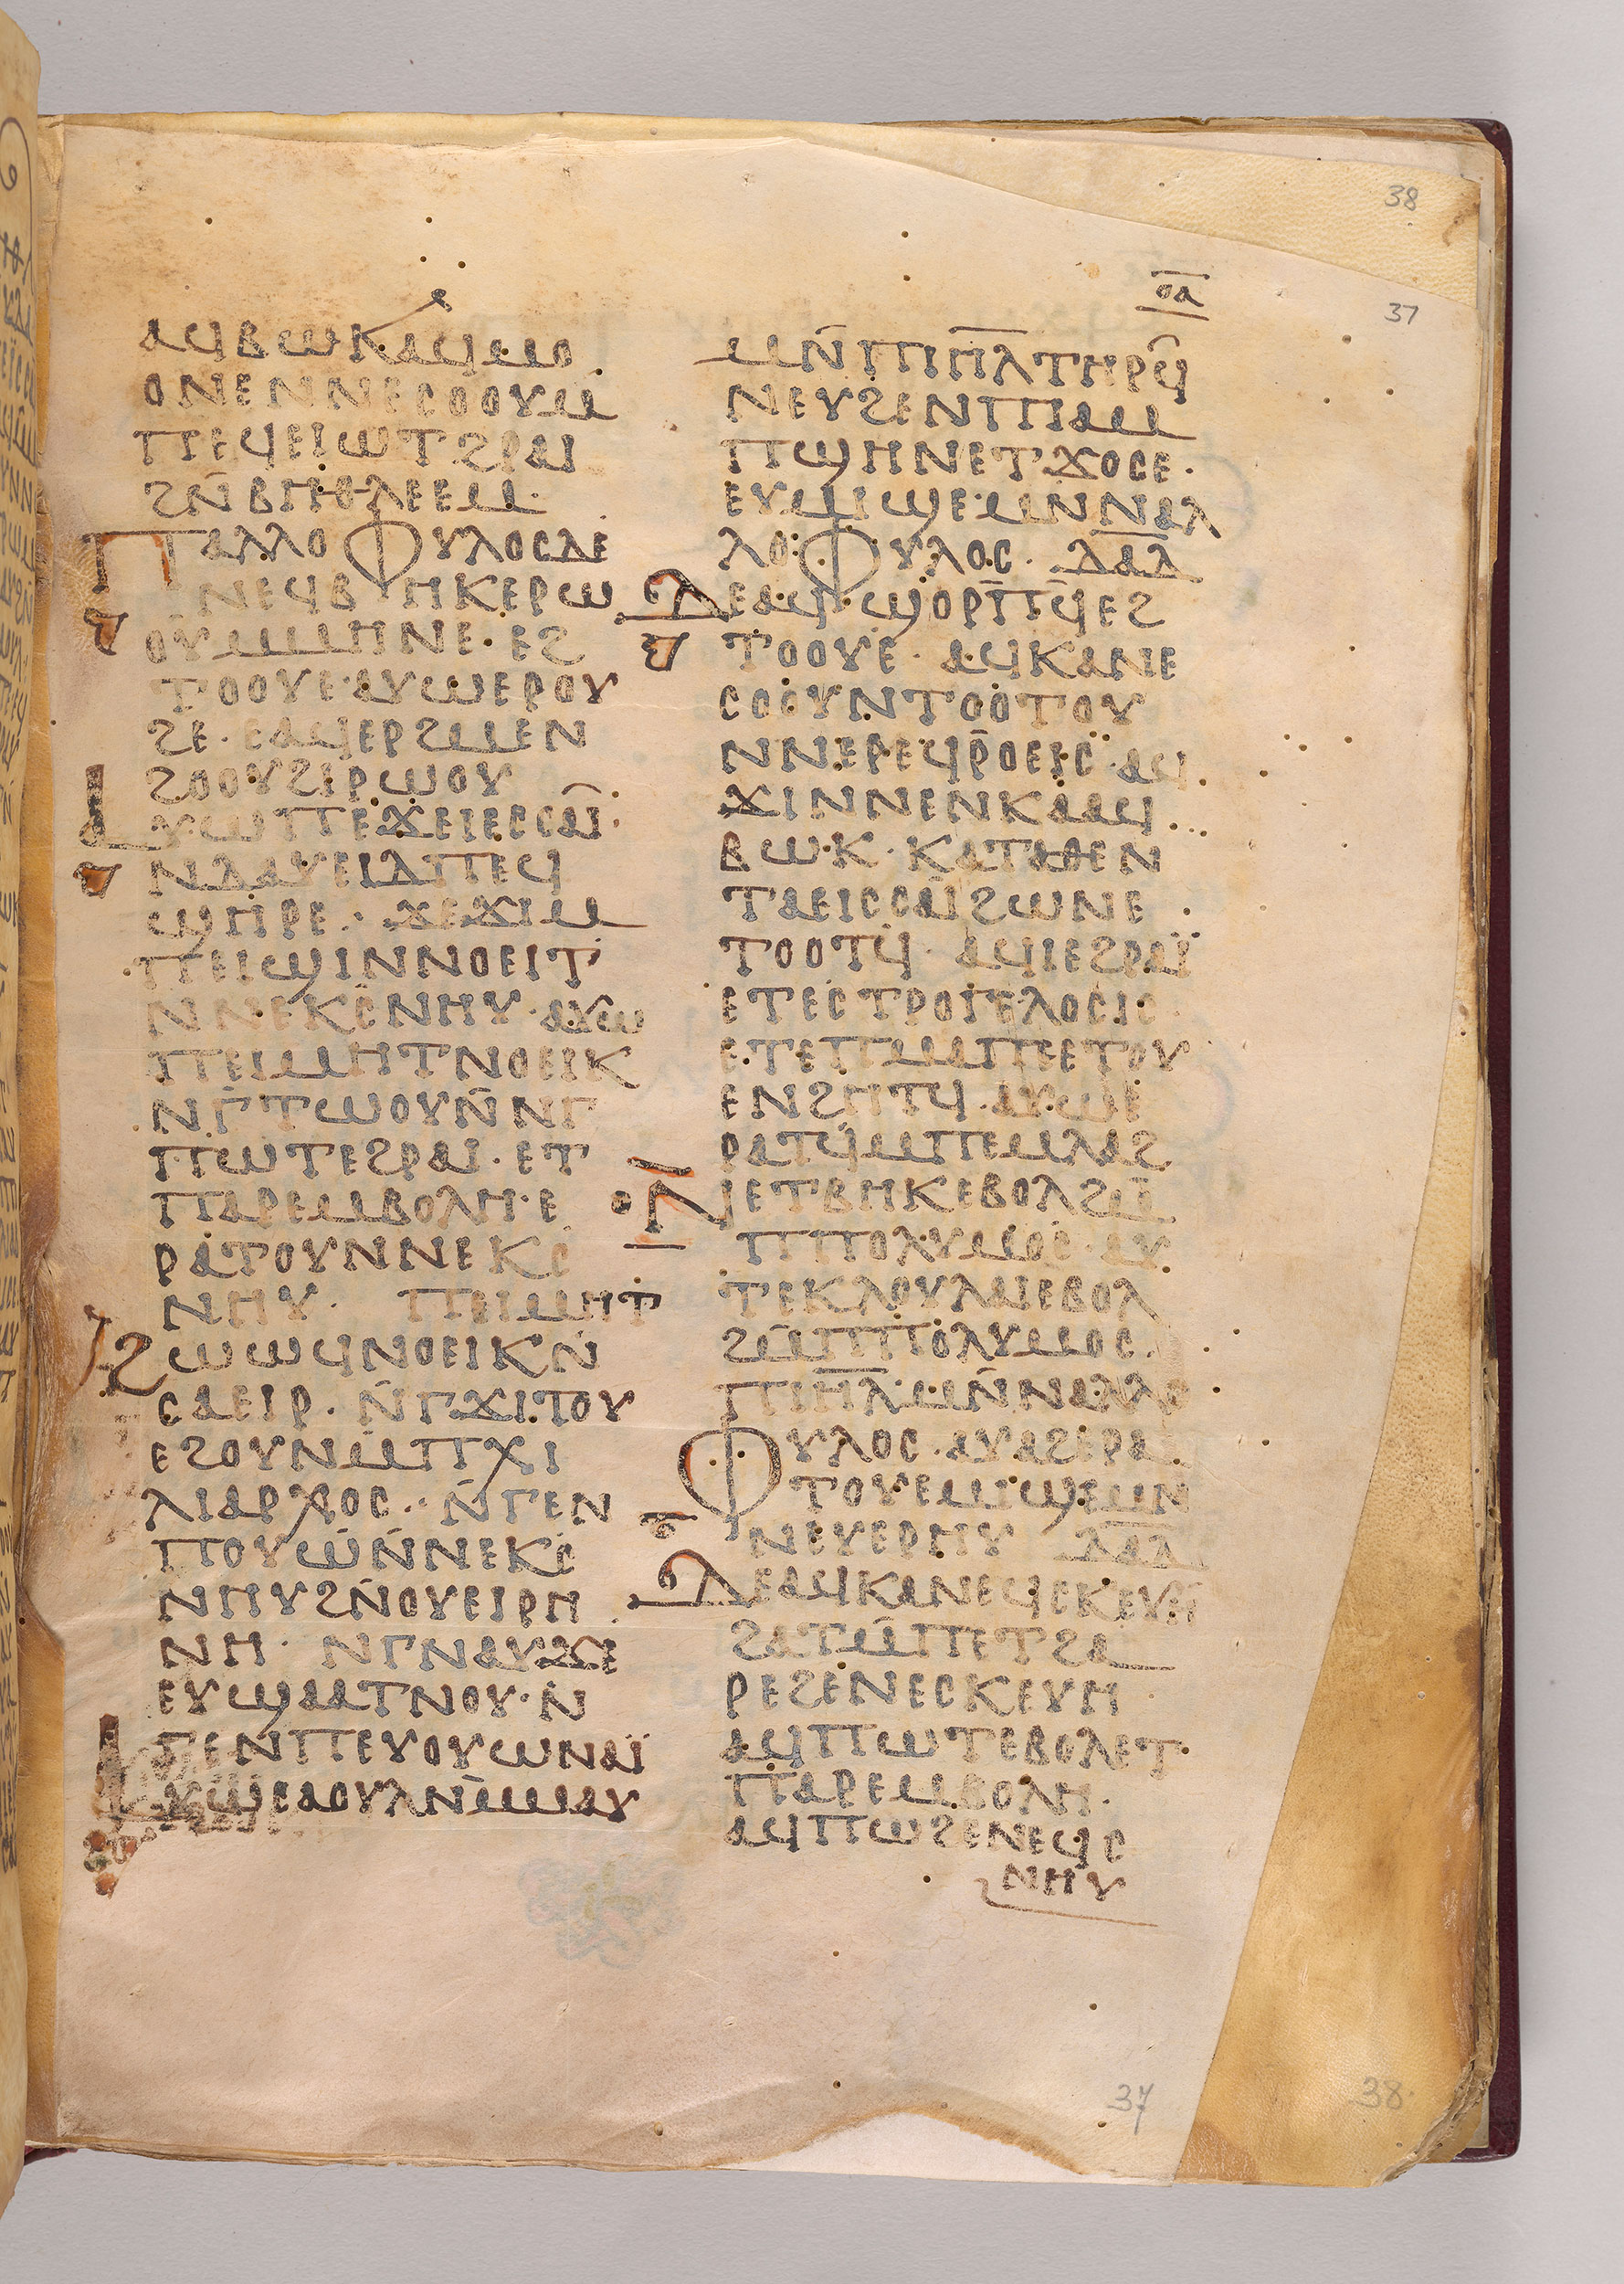 38
37
ⲟ̅ⲁ̅
ⲁϥⲃⲱⲕ ⲁϥⲙⲟ
ⲟⲛⲉ ⲛⲛⲉⲥⲟⲟⲩ ⲙ
ⲡⲉϥⲉⲓⲱⲧ ϩⲣⲁⲓ
ϩⲛ̄ ⲃⲏⲑⲗⲉⲉⲙ·
ⲡⲁⲗⲗⲟⲫⲩⲗⲟⲥ ⲇⲉ
ⲛⲉϥⲃⲏⲕ ⲉⲣⲱ
ⲟⲩ ⲙⲙⲏⲛⲉ· ⲉϩ
ⲧⲟⲟⲩⲉ· ⲁⲩⲱ ⲉⲣⲟⲩ
ϩⲉ· ⲉⲁϥⲉⲣ ϩⲙⲉ ⲛ
ϩⲟⲟⲩ ϩⲓⲣⲱⲟⲩ
ⲁⲩⲱ ⲡⲉϫⲉ ⲓⲉⲥⲥⲁⲓ̂
ⲛⲇⲁⲩⲉⲓⲇ ⲡⲉϥ
ϣⲏⲣⲉ· ϫⲉ ϫⲓ ⲙ
ⲡⲉⲓϣⲓ ⲛⲛⲟⲉⲓⲧ
ⲛⲛⲉⲕⲥⲛⲏⲩ· ⲁⲩⲱ
ⲡⲉⲓⲙⲏⲧ ⲛⲟⲉⲓⲕ
ⲛⲅ̄ⲧⲱⲟⲩⲛ̄ ⲛⲅ
ⲡⲱⲧ ⲉϩⲣⲁⲓ· ⲉⲧ
ⲡⲁⲣⲉⲙⲃⲟⲗⲏ· ⲉ
ⲣⲁⲧⲟⲩ ⲛⲛⲉⲕⲥ
ⲛⲏⲩ· ⲡⲉⲓⲙⲏⲧ
ϩⲱⲱϥ ⲛⲟⲉⲓⲕ ⲛ̄
ⲥⲁⲉⲓⲣ· ⲛ̄ⲅϫⲓⲧⲟⲩ
ⲉϩⲟⲩⲛ ⲙ̄ⲡⲭⲓ
ⲗⲓⲁⲣⲭⲟⲥ· ⲛ̄ⲅⲉⲛ
ⲡⲟⲩⲱ ⲛ̄ⲛⲉⲕⲥ
ⲛⲏⲩ ϩⲛ̄ ⲟⲩⲉⲓⲣⲏ
ⲛⲏ· ⲛⲅⲛⲁⲩ ϫⲉ
ⲉⲩϣⲁⲁⲧ ⲛⲟⲩ· ⲛ̄
ⲅⲉⲛ ⲡⲉⲩⲟⲩⲱ ⲛⲁⲓ̈
ⲁⲩⲱ ⲥⲁⲟⲩⲗ ⲛ̄ⲙⲙⲁⲩ
ⲙⲛ̄ ⲡⲓⲏ̅ⲗ̅ ⲧⲏⲣϥ̂
ⲛⲉⲩϩⲉⲛ ⲡⲓⲁ ⲙ
ⲡϣⲏⲛ ⲉⲧϫⲟⲥⲉ·
ⲉⲩⲙⲓϣⲉ· ⲙⲛ ⲛⲁⲗ
ⲗⲟⲫⲩⲗⲟⲥ· ⲇ̅ⲁ̅ⲇ̅
ⲇⲉ ⲁϥϣⲟⲣⲡ̄ϥ̄ ⲉϩ
ⲧⲟⲟⲩⲉ· ⲁϥⲕⲁ ⲛⲉ
ⲥⲟⲟⲩ ⲛⲧⲟⲟⲧⲟⲩ
ⲛⲛⲉⲣⲉϥⲣ̄ⲟⲉⲓⲥ· ⲁϥ
ϫⲓ ⲛⲛⲉⲛⲕⲁ ⲁϥ
ⲃⲱⲕ· ⲕⲁⲧⲁ ⲑⲉ ⲛ
ⲧⲁ ⲉⲓⲥⲥⲁⲓ̈ ϩⲱⲛ ⲉ
ⲧⲟⲟⲧϥ· ⲁϥⲓ ⲉϩⲣⲁⲓ̈
ⲉⲧⲉⲥⲧⲣⲟⲅⲅⲉⲗⲟⲥⲓⲥ
ⲉⲧⲉ ⲡⲙⲁ ⲡⲉ ⲉⲧⲟⲩ
ⲉⲛϩⲏⲧϥ· ⲁⲩⲱ ⲉ
ⲣⲁⲧϥ ⲙⲡⲉⲙⲗⲁϩ
ⲛⲉⲧⲃⲏⲕ ⲉⲃⲟⲗ ϩⲙ̄
ⲡⲡⲟⲗⲩⲙⲟⲥ· ⲁⲩ
ⲧⲉⲕⲗⲟⲩⲗⲁⲓ ⲉⲃⲟⲗ
ϩⲙ̄ ⲡⲡⲟⲗⲩⲙⲟⲥ·
ⲡⲓⲏ̅ⲗ̅· ⲙⲛ̄ ⲛⲁⲗⲗⲟ
ⲫⲩⲗⲟⲥ· ⲁⲩⲁϩⲉⲣⲁ
ⲧⲟⲩ ⲉⲙⲓϣⲉ ⲙⲛ
ⲛⲉⲩⲉⲣⲏⲩ ⲇ̅ⲁ̅ⲇ̅
ⲇⲉ ⲁϥⲕⲁ ⲛⲉϥⲉⲕⲉⲩⲏ
ϩⲁⲧⲙ̄ ⲡⲉⲧϩⲁ
ⲣⲉϩ ⲉⲛⲉⲥⲕⲉⲩⲏ
ⲁϥⲡⲱⲧ ⲉⲃⲟⲗ ⲉⲧ
ⲡⲁⲣⲉⲙⲃⲟⲗⲏ·
ⲁϥⲡⲱϩ ⲉⲛⲉϥⲥ
ⲛⲏⲩ
37
38